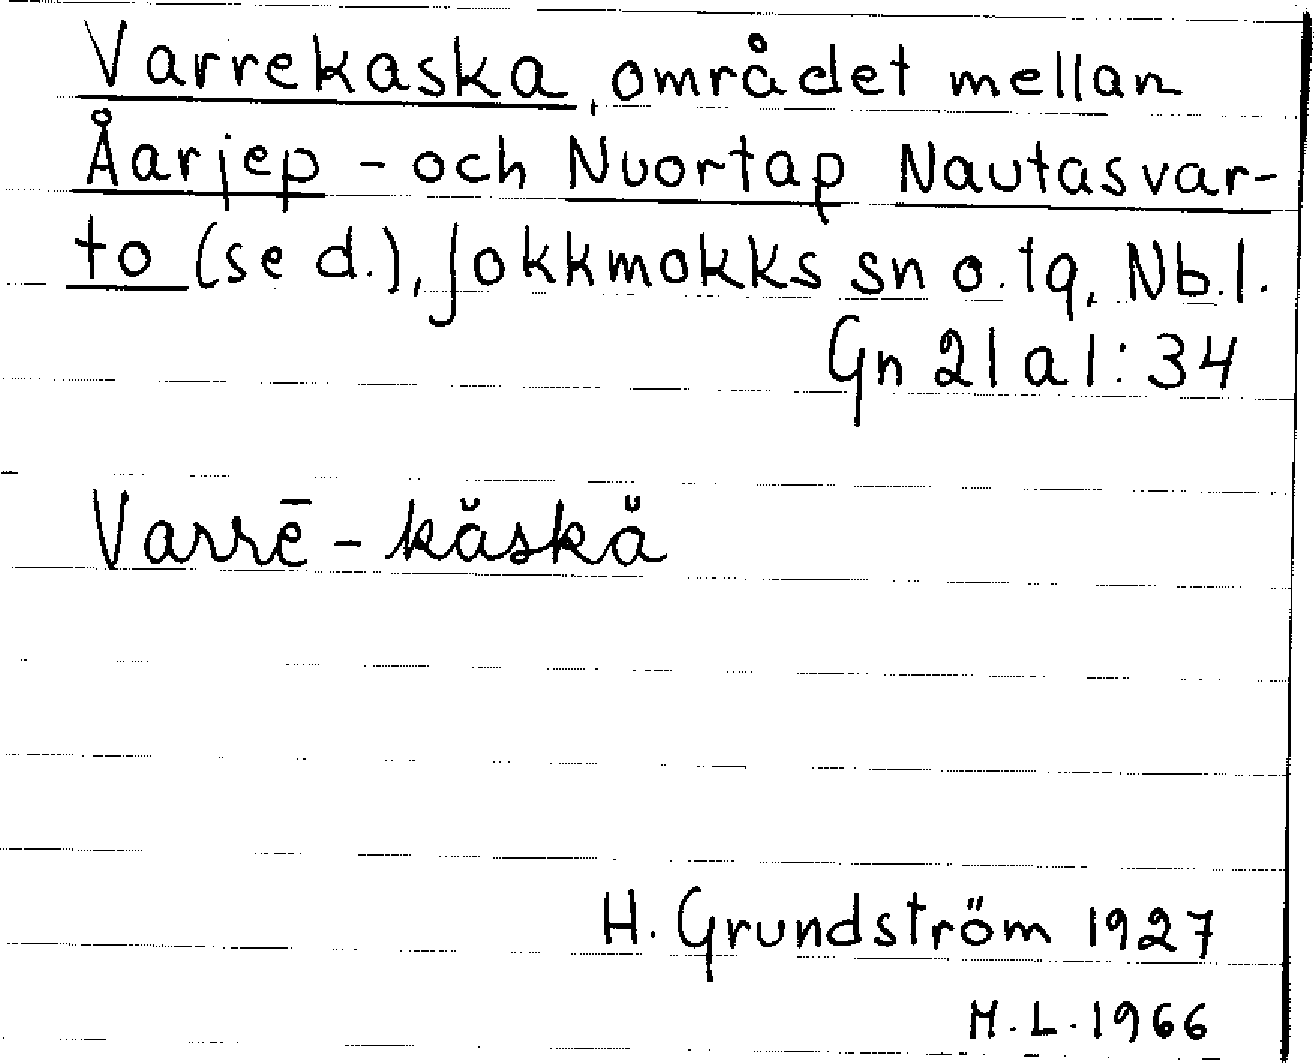 Varrekaska, området mellan
Åarjep - och Nuortap Nautasvar-
to (se d.), Jokkmokks sn o. tg, Nb.l.
Gn 21 a 1:34
Varrē - kăskă
H. Grundström 1927
H.L. 1966